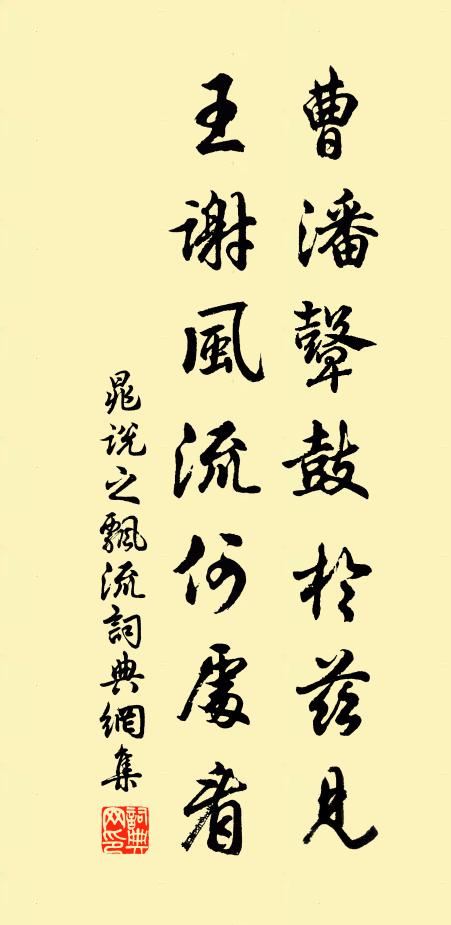 曹潘鼙鼓於茲見
王謝風流何處看
晁說之飄流詞典網集
詞典網印